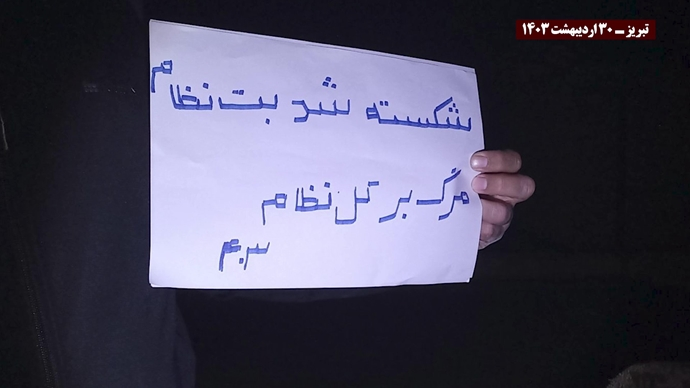 تبریز – ۳۰ اردیبهشت ۱۴۰۳
شکسته شد بت نظام
مرگ بر کل نظام
۴۰۳